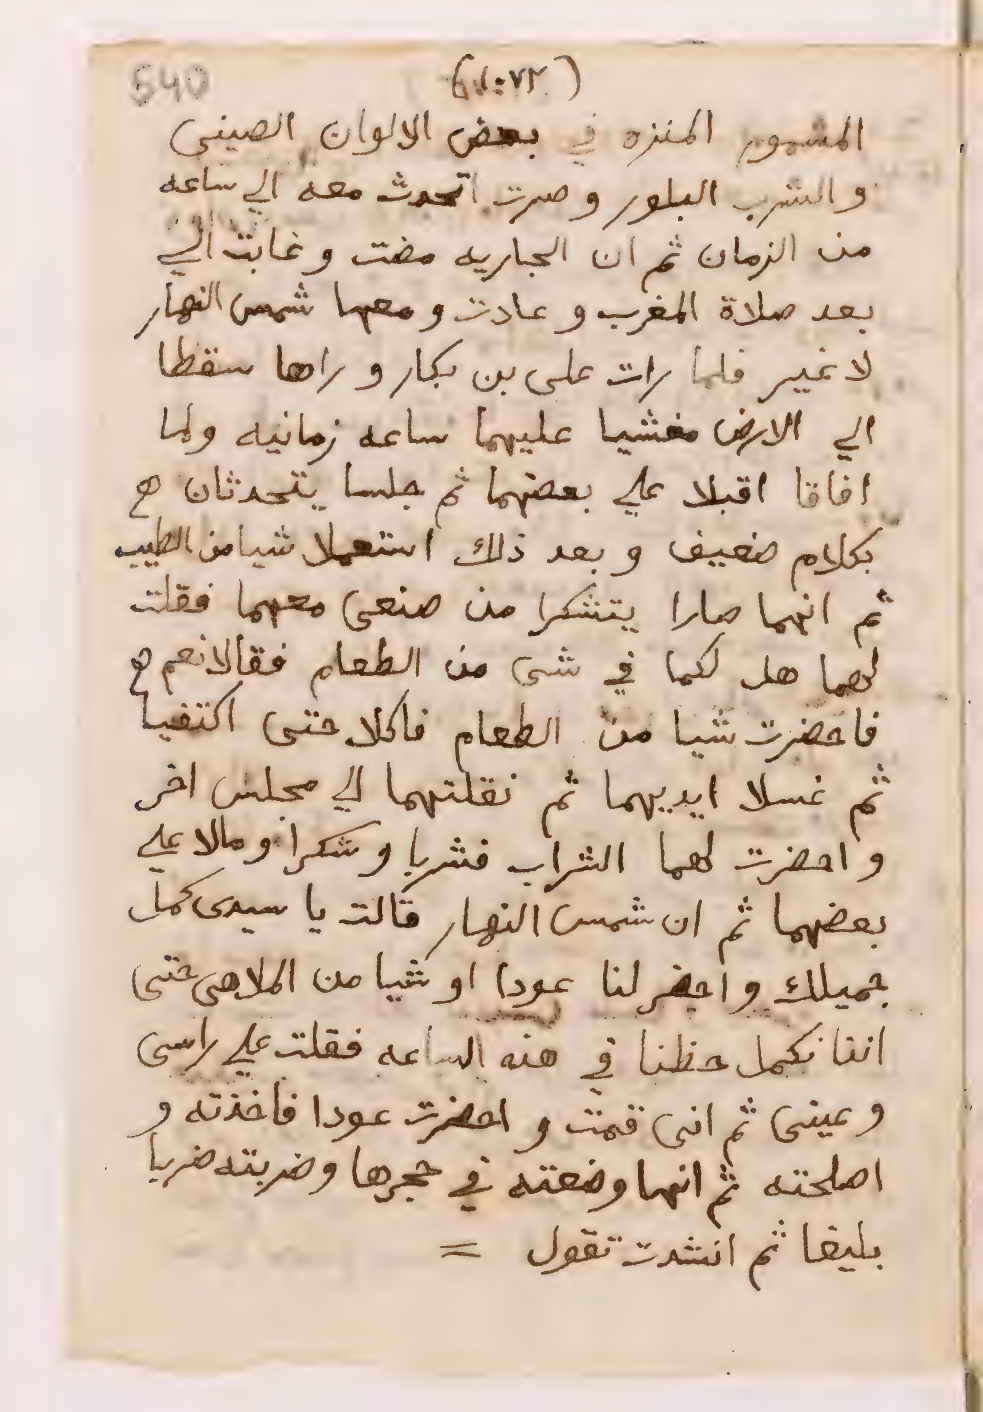 540
المشموم المنزه في بعض الالوان الصيني
والشرب البلور وصرت اتحدث معه الي ساعه
من الزمان ثم ان الجاريه مضت وغابت الي
بعد صلاة المغرب وعادت ومعها شمس النهار
لا غير فلما رات على بن بكار وراها سقطا
الي الارض مغشيا عليهما ساعه زمانيه ولما
افاقا اقبلا علي بعضهما ثم جلسا يتحدثان
بكلام ضعيف وبعد ذلك استعملا شيا من الطيب
ثم انهما صارا يتشكرا من صنعى معهما فقلت
لهما هل لكما في شى من الطعام فقالا نعم
فاحضرت شيا من الطعام فاكلا حتى اكتفيا
ثم غسلا ايديهما ثم نقلتهما الي مجلس اخر
واحضرت لهما الشراب فشربا وشكرا ومالا علي
بعضهما ثم ان شمس النهار قالت يا سيدى كمل
جميلك واحضر لنا عودا او شيا من الملاهى حتى
اننا نكمل حظنا في هذه الساعه فقلت علي راسى
وعينى ثم انى قمت واحضرت عودا فاخذته و
اصلحته ثم انها وضعته في حجرها وضربته ضربا
بليغا ثم انشدت تقول =